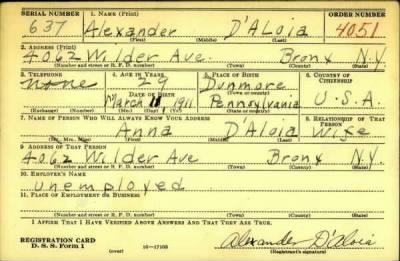 SERIAL NUMBER 1. NAME (Print) ORDER NUMBER
637 Alexander D'Aloia 4051
(First) (Middle) (Last)
2. ADDRESS (Print)
4062 Wilder Ave. Bronx N.Y.
(Number and street or R. F. D. number) (Town) (County) (State)
3. TELEPHONE 4. AGE IN YEARS 5. PLACE OF BIRTH 6. COUNTRY OF CITIZENSHIP
none 29 Dunmore
DATE OF BIRTH (Town or county)
March 1911 Pennsylvania U.S.A.
(Exchange) (Number) (Mo.) (Day) (Yr.) (State or country)
7. NAME OF PERSON WHO WILL ALWAYS KNOW YOUR ADDRESS 8. RELATIONSHIP OF THAT PERSON
Anna D'Aloia Wife
(Mr., Mrs., Miss) (First) (Middle) (Last)
9. ADDRESS OF THAT PERSON
4062 Wilder Ave Bronx N.Y.
(Number and street or R. F. D. number) (Town) (County) (State)
10. EMPLOYER'S NAME
unemployed
11. PLACE OF EMPLOYMENT OR BUSINESS
(Number and street or R. F. D. number) (Town) (County) (State)
I AFFIRM THAT I HAVE VERIFIED ABOVE ANSWERS AND THAT THEY ARE TRUE.
REGISTRATION CARD Alexander D'Aloia
D. S. S. Form 1 (over) 16-17105 (Registrant's signature)